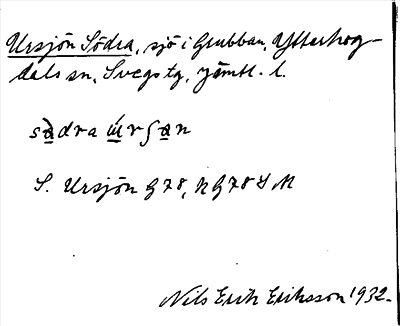 Ursjön Södra, sjö i Grubban, Ytterhog-
dals sn, Svegs tg, Jämtl. l.
södra ɯ́rʃɵn
S. Ursjön G 78, N G 78 S M
Nils Erik Eriksson 1932.